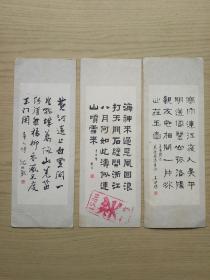 黄河远上白云间一
片孤城万仞山羌笛
何须怨杨柳春风不度
玉门关
海神来過惡風回浪
打天門石壁開浙江
八月何如此濤似連
山噴雪来
寒雨連江夜入吴平
明送客楚山孤洛陽
親友如相問一片冰
心在玉壺